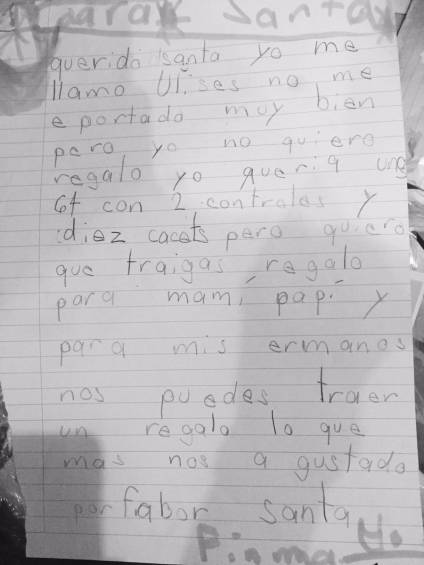 Para Santa
querido santa yo me
llamo Ulises no me
e portado muy bien
pero yo no quiero
regalo yo queria una
con 2 controles y
diez cacets pero quiero
que traigas regalo
para mami papi y
para mis ermanos
nos puedes traer
un regalo lo que
mas nos a gustado
porfabor santa